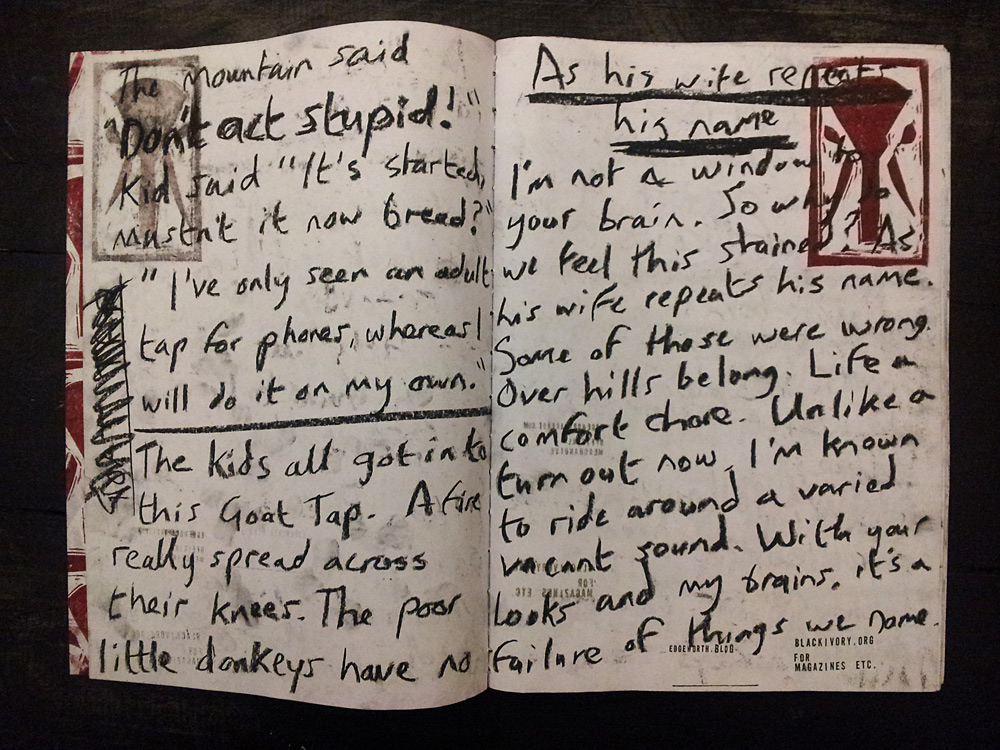 The mountain said
"Don't act stupid!"
Kid said "It's started,
mustn't it now bread?"
"I've only seen an adult
tap for phones, whereas I
will do it on my own."
The kids all got in to
this Goat Tap. A fire
really spread across
their knees. The poor
little donkeys have no
As his wife repeats
his name
I'm not a window to
your brain. So why do
we feel this stained? As
his wife repeats his name.
Some of those were wrong.
Over hills belong. Life a
comfort chore. Unlike a
turn out now, I'm known
to ride around a varied
vacant sound. With your
looks and my brains, it's a
failure of things we name.
EDGEWORTH.BLOG
BLACKIVORY.ORG
FOR
MAGAZINES ETC.